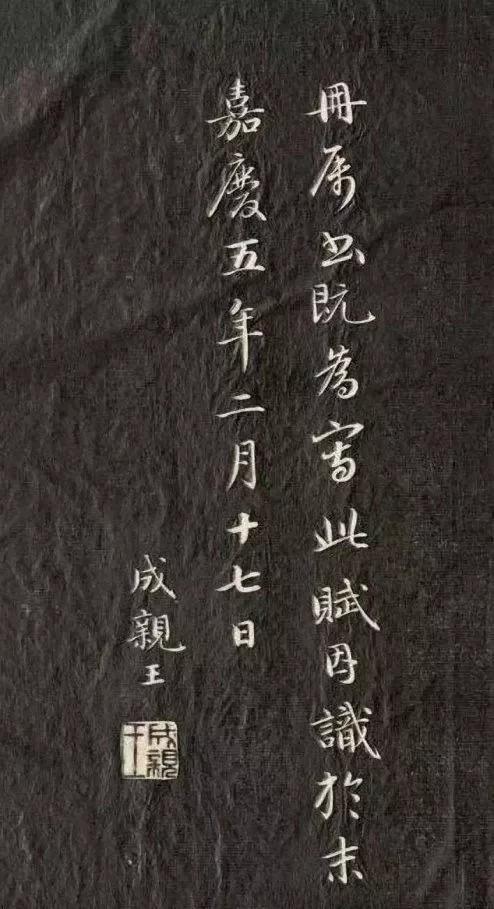 冊属书既為寫此賦因識於末
嘉慶五年二月十七日
成親王
成親王